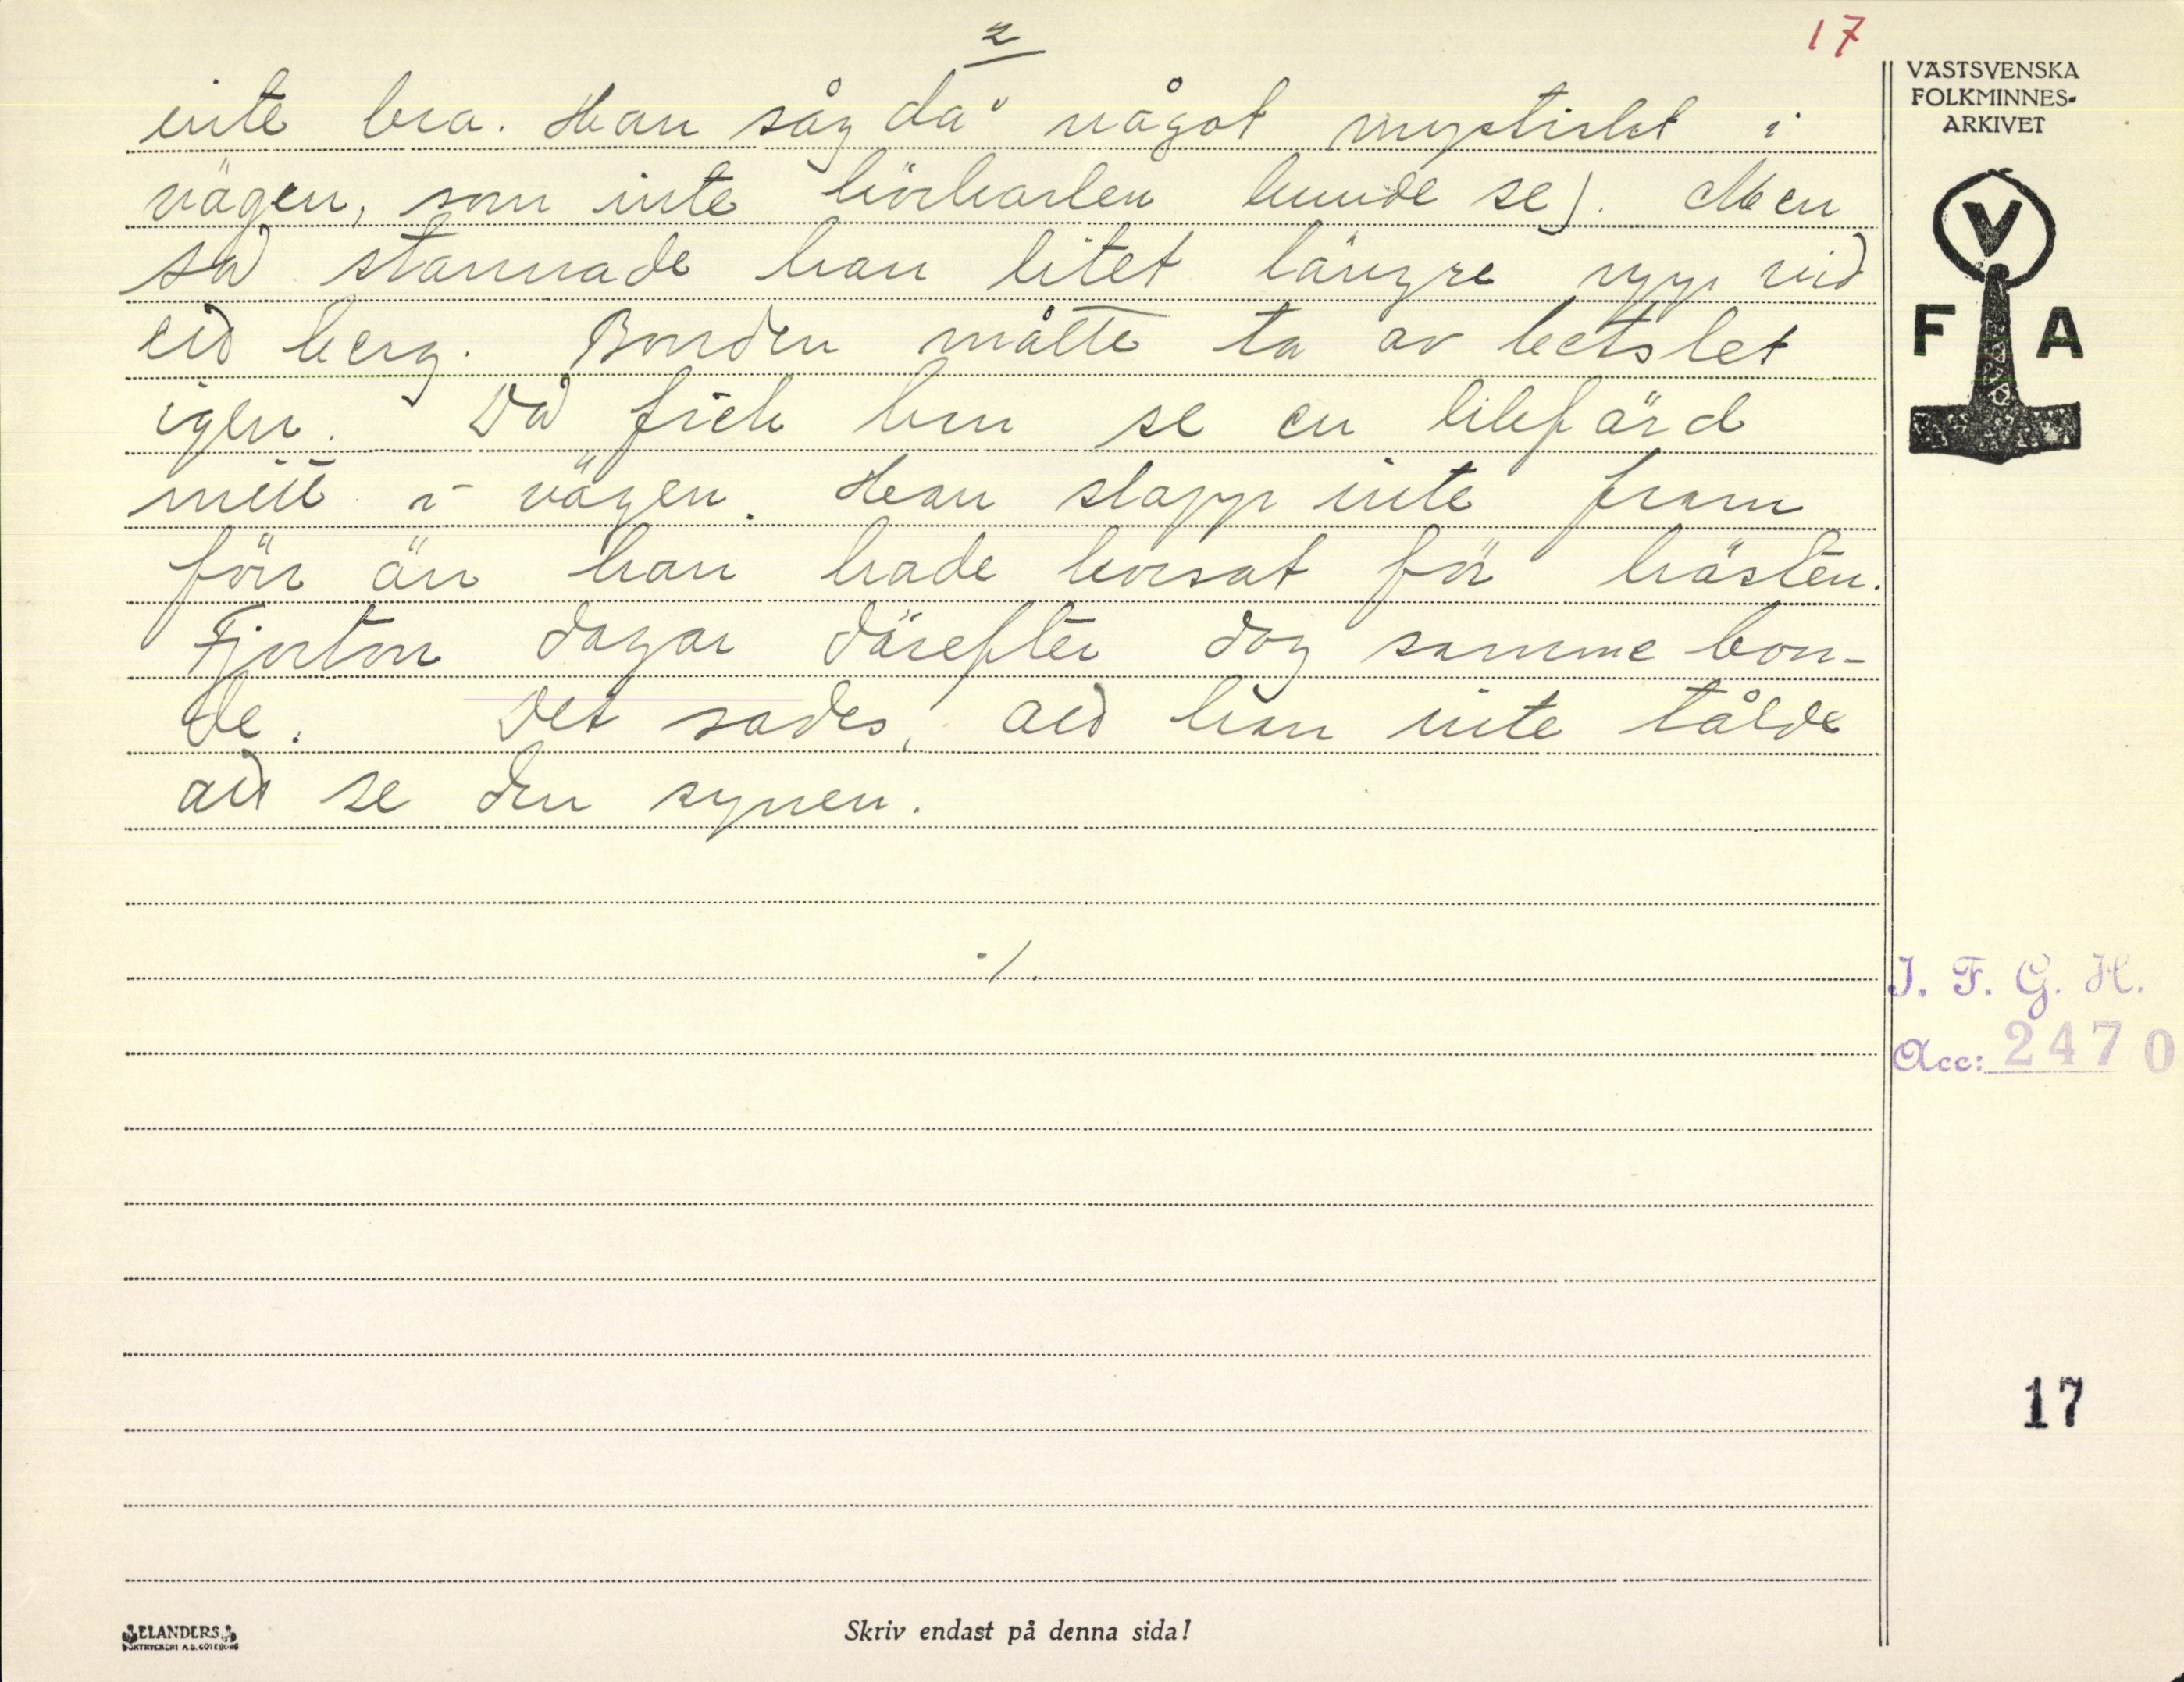 2
17
inte bra. Han såg då något mystiskt i
vägen, som inte körkarlen kunde se). Men
så stannade han litet längre upp vid
ett berg. Bonden måtte ta av betslet
igen. Då fick han se en likfärd
mitt i vägen. Han slapp inte fram
förr än han hade korsat för hästen.
Fjorton dagar därefter dog samme bon-
de. Det sades, att han inte tålde
att se den synen.
./.
VÄSTSVENSKA
FOLKMINNES-
ARKIVET
V
F A
I. F. G. H.
Acc: 2470
17
ELANDERS
BOKTRYCKERI A.B. GÖTEBORG
Skriv endast på denna sida!